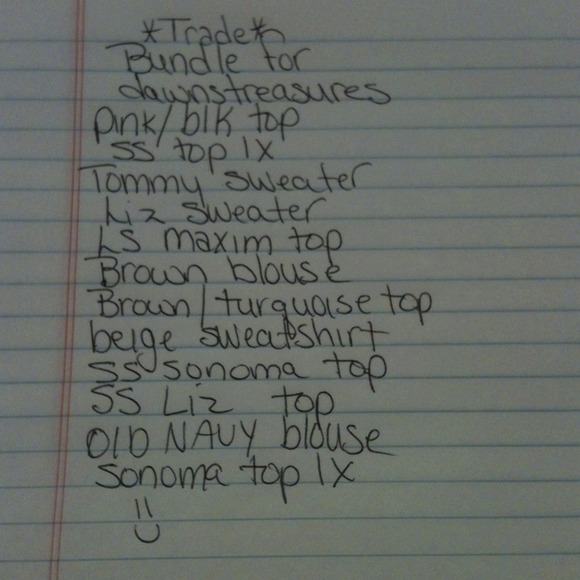 *Trade*
Bundle for
dawnstreasures
pink/blk top
SS top 1X
Tommy sweater
Liz sweater
LS maxim top
Brown blouse
Brown/turquoise top
beige sweatshirt
SS sonoma top
SS Liz top
OLD NAVY blouse
Sonoma top 1X